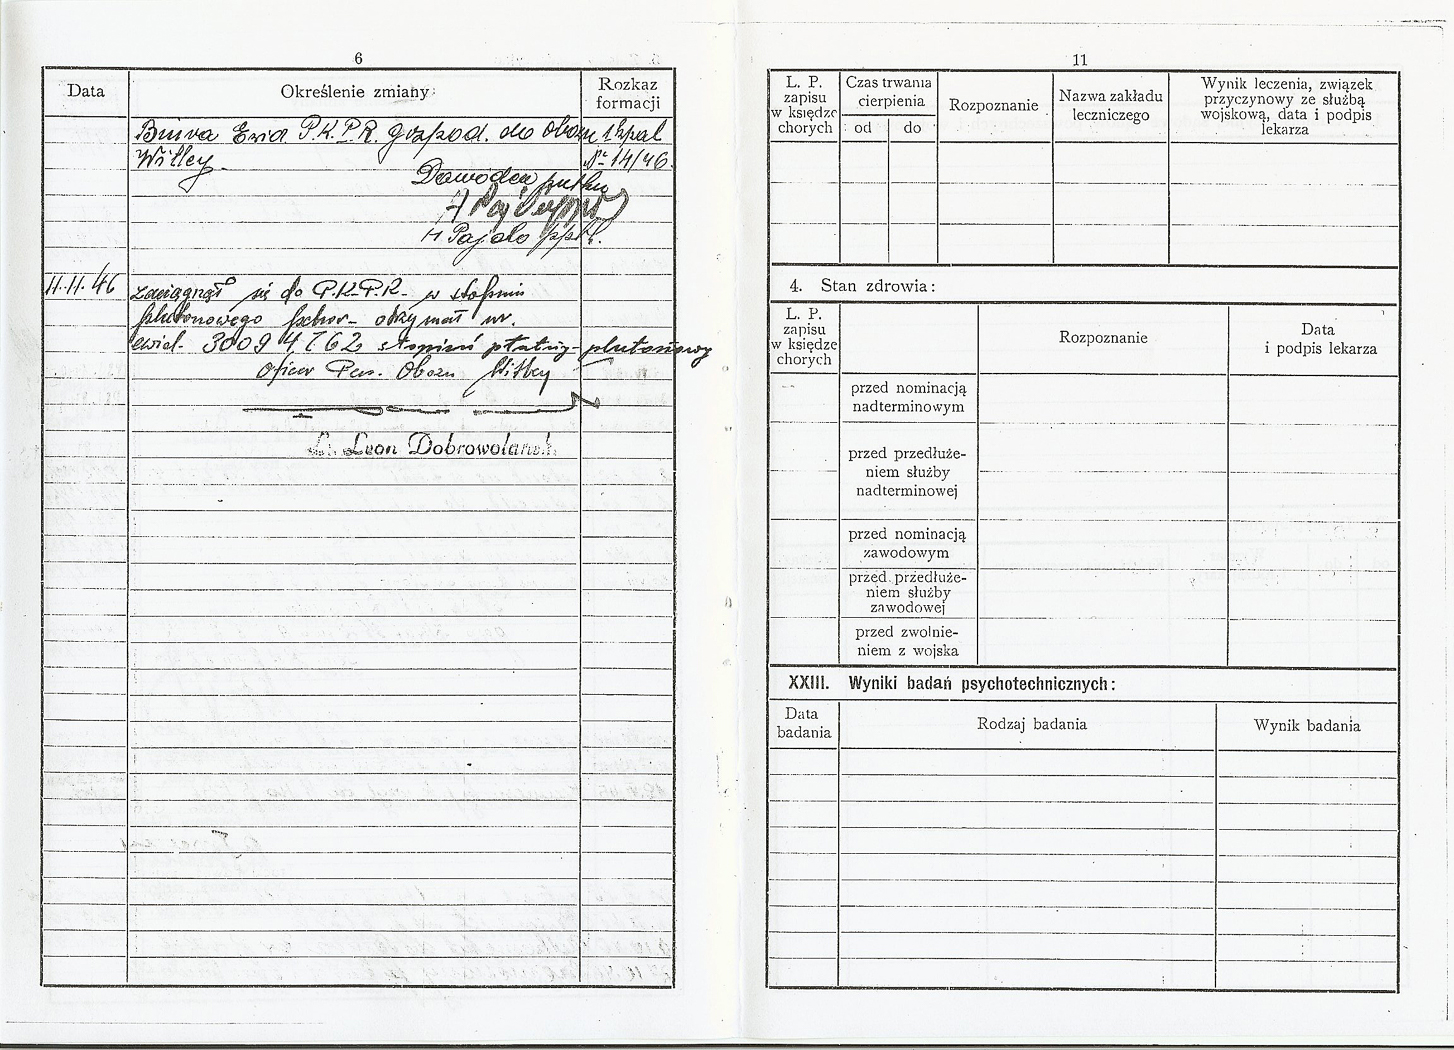 6
Data
Określenie zmiany:
Rozkaz
formacji
Biura Ewid. P.K.P.R. gospod. do obozu
Witley.
Nr 14/46.
Dowódca pułku
H Pajdo ppłk.
11.11.46
zaciągnął się do P.K.P.R. w stopniu
plutonowego pchor. otrzymał nr.
ewid. 30094762 stopień płatny-plutonowy
Oficer Pers. Obozu Witley
Lt. Leon Dobrowolański
11
L. P.
zapisu
w księdze
chorych
Czas trwania
cierpienia
od
do
Rozpoznanie
Nazwa zakładu
leczniczego
Wynik leczenia, związek
przyczynowy ze służbą
wojskową, data i podpis
lekarza
4. Stan zdrowia:
L. P.
zapisu
w księdze
chorych
Rozpoznanie
Data
i podpis lekarza
przed nominacją
nadterminowym
przed przedłuże-
niem służby
nadterminowej
przed nominacją
zawodowym
przed przedłuże-
niem służby
zawodowej
przed zwolnie-
niem z wojska
XXIII. Wyniki badań psychotechnicznych:
Data
badania
Rodzaj badania
Wynik badania